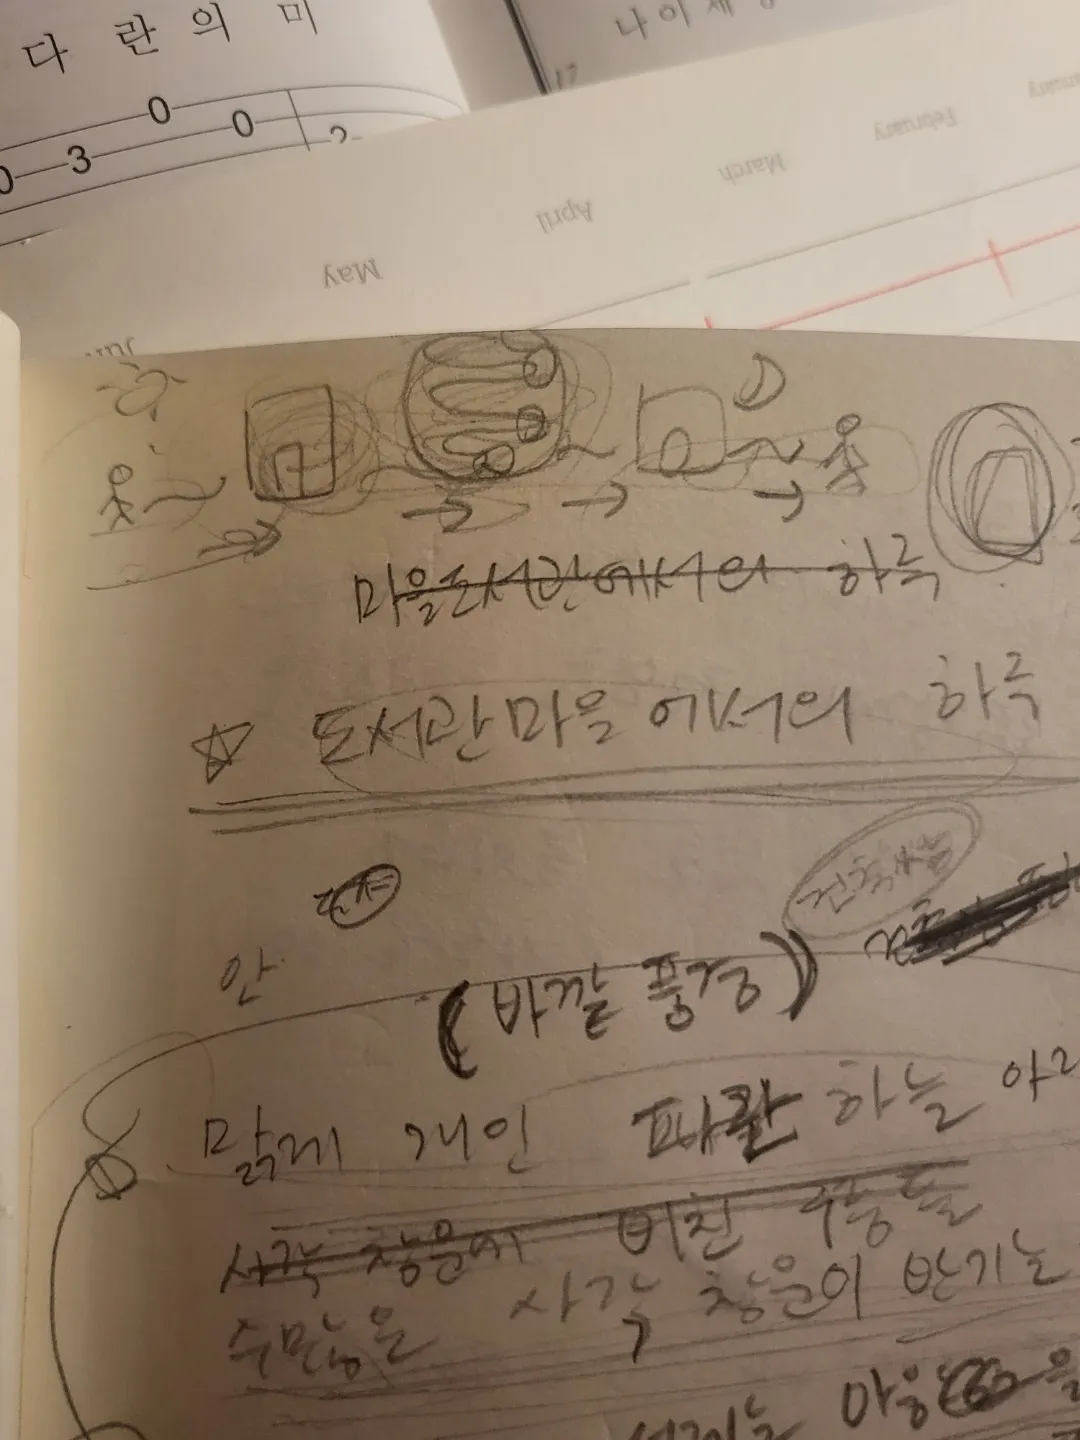 다 란 의 미
나 이 세
17
0 3 0 0 2
January
February
March
April
May
마을도서관에서의 하루
☆ 도서관마을에서의 하루
안
(바깥 풍경)
맑게 개인 파란 하늘 아래
사각 창문에 비친 구름들
수많은 사각 창문이 반기는
서재는 마음을